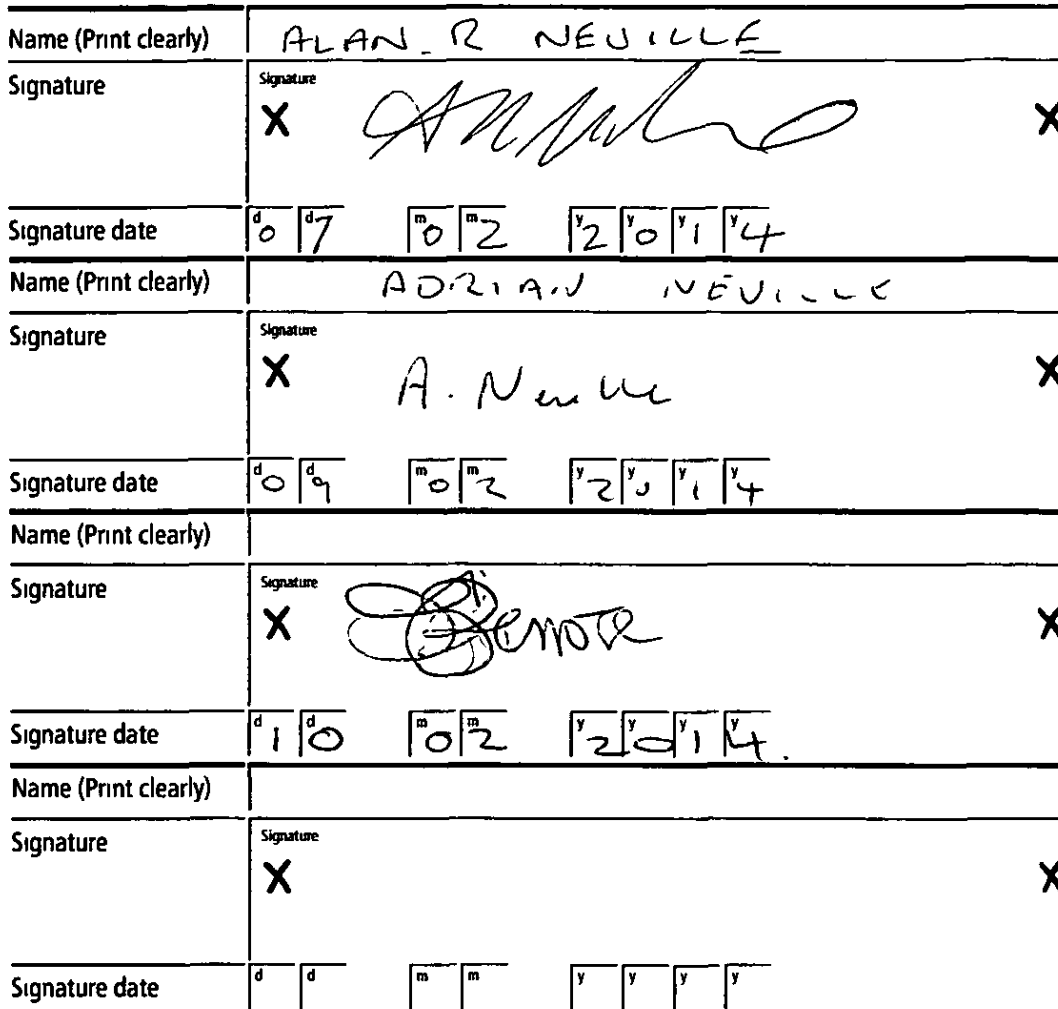 Name (Print clearly) ALAN R NEVILLE
Signature Signature
X X
Signature date d0 d7 m0 m2 y2 y0 y1 y4
Name (Print clearly) ADRIAN NEVILLE
Signature Signature
X A. Neville X
Signature date d0 d9 m0 m2 y2 y0 y1 y4
Name (Print clearly)
Signature Signature
X X
Signature date d1 d0 m0 m2 y2 y0 y1 y4.
Name (Print clearly)
Signature Signature
X X
Signature date d d m m y y y y